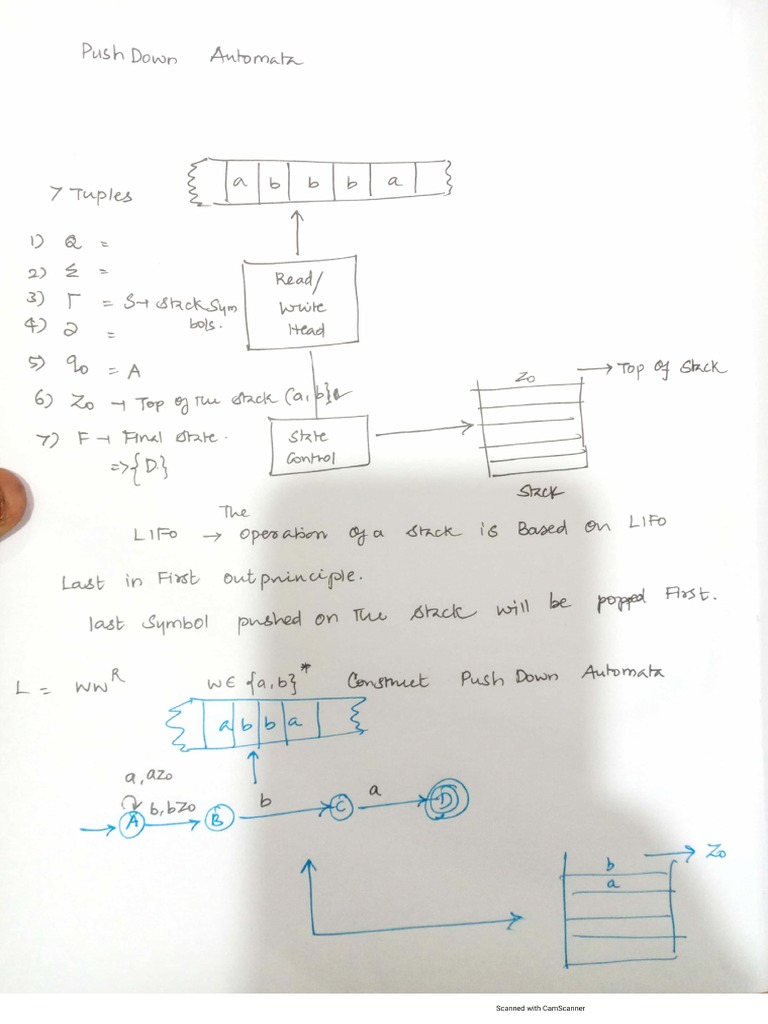 Push Down Automata
a b b b a
7 Tuples
1) Q =
2) Σ =
3) Γ = S→ Stack Sym
bols.
4) ∂ =
5) q0 = A
6) Z0 → Top of The stack (a, b}
7) F → Final State.
=>{D.}
Read/
Write
Head
State
Control
Z0
→ Top of Stack
Stack
The
LIFO → operation of a stack is Based on LIFO
Last in First out principle.
last Symbol pushed on The stack will be popped First.
L = WW^R W∈ {a, b}* Construct Push Down Automata
a b b a
a, aZ0
b, bZ0 b a
A B C D
b → Z0
a
Scanned with CamScanner